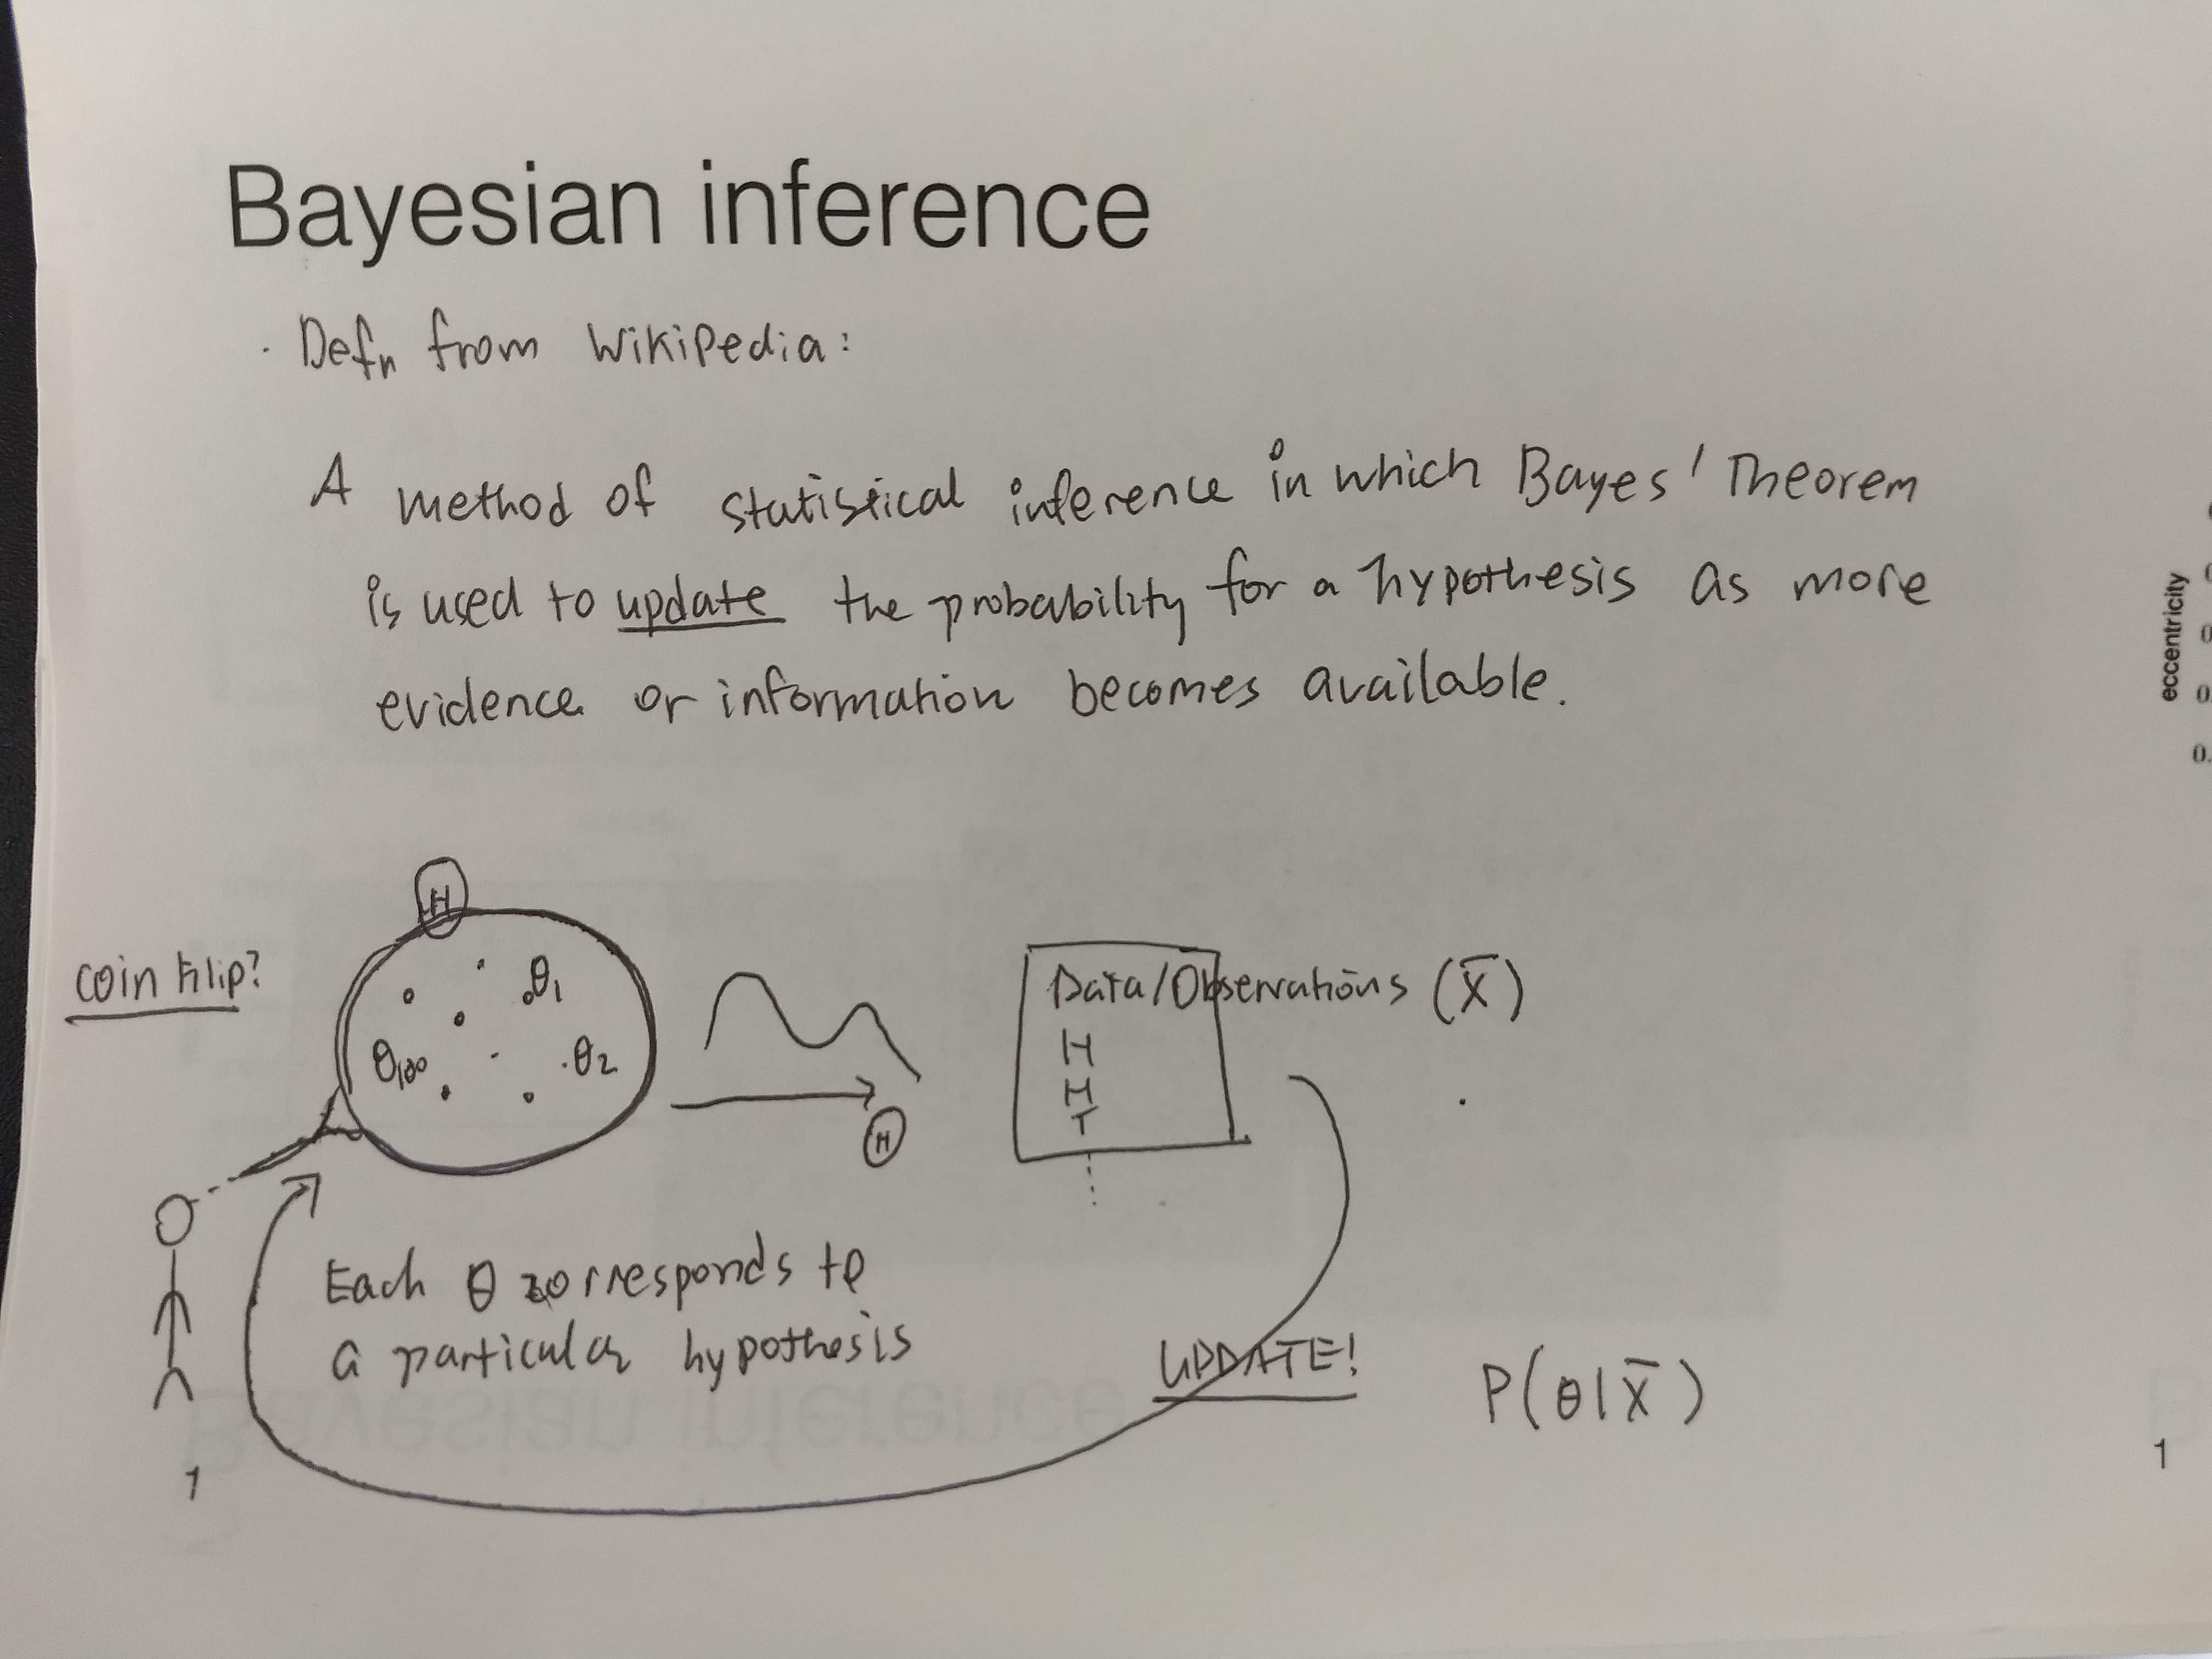 Bayesian inference
· Defn from Wikipedia:
A method of statistical inference in which Bayes' Theorem
is used to update the probability for a hypothesis as more
evidence or information becomes available.
eccentricity
0
0.
0.
H
coin flip?
θ1
θ100
θ2
H
Data/Observations (x̄)
H
H
T
Each θ corresponds to
a particular hypothesis
UPDATE!
P(θ|x̄)
1
1